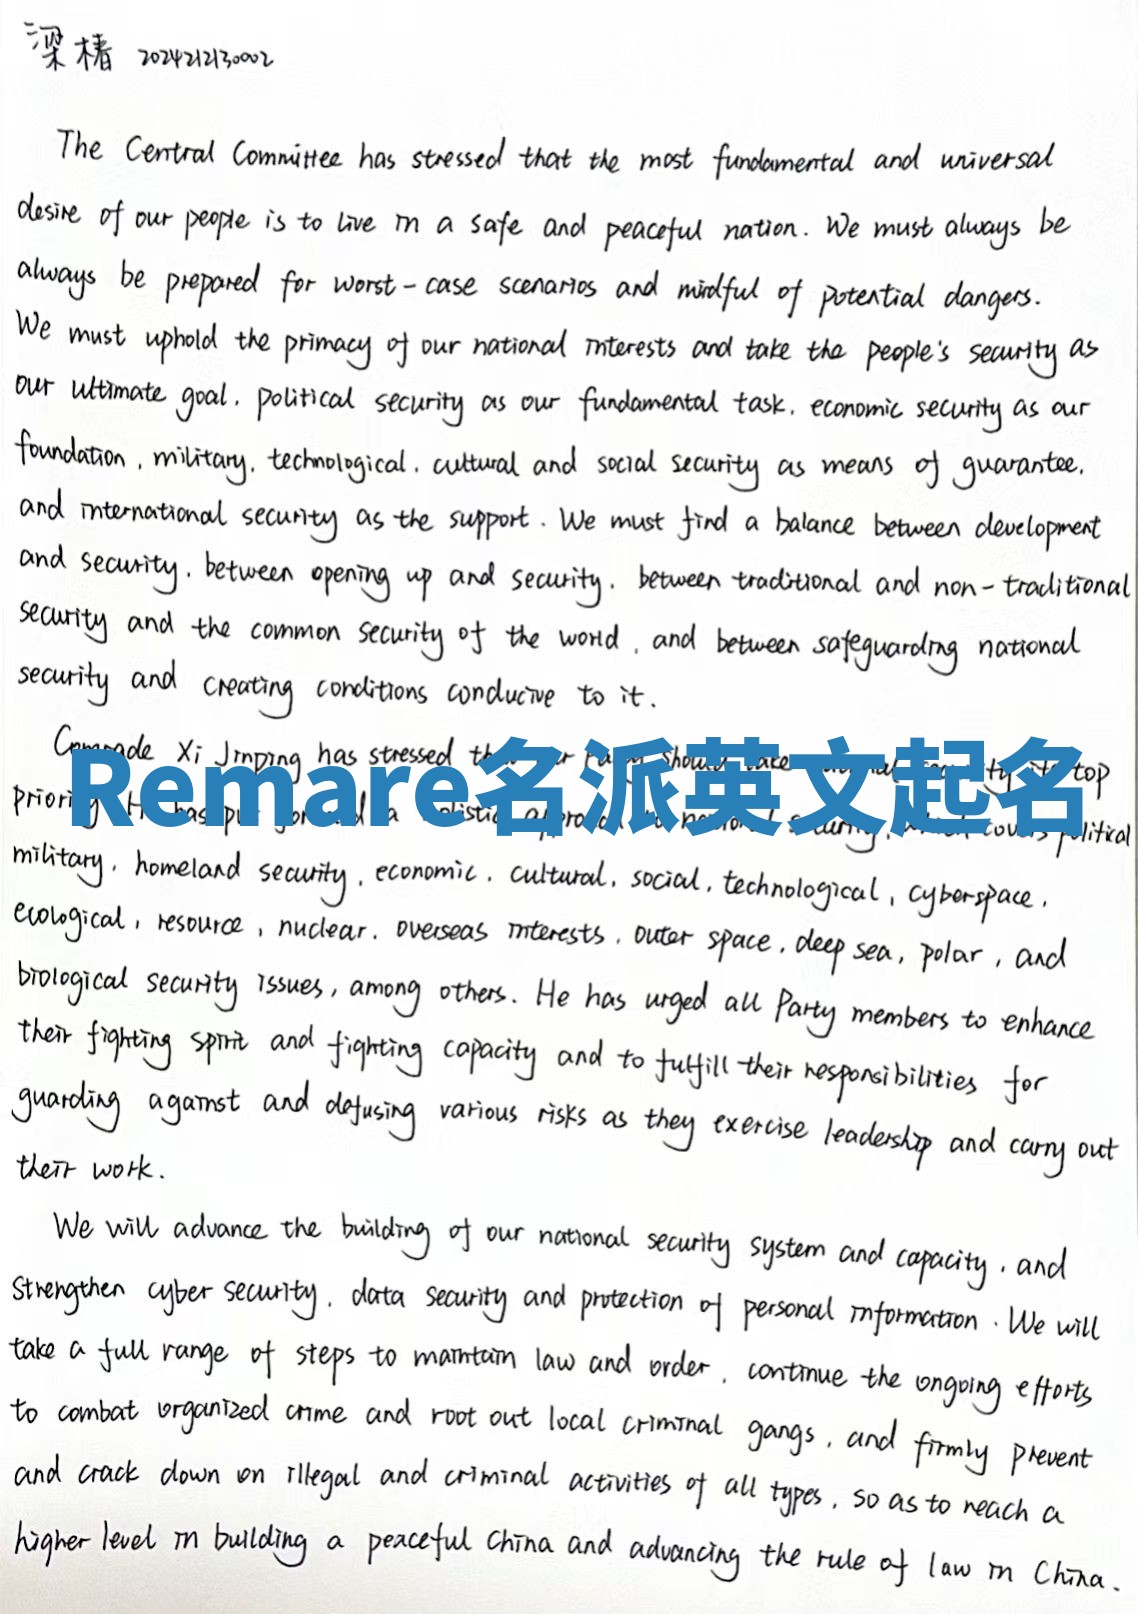 梁椿 2024212130002
The Central Committee has stressed that the most fundamental and universal
desire of our people is to live in a safe and peaceful nation. We must always be
always be prepared for worst-case scenarios and mindful of potential dangers.
We must uphold the primacy of our national interests and take the people's security as
our ultimate goal, political security as our fundamental task, economic security as our
foundation, military, technological, cultural and social security as means of guarantee,
and international security as the support. We must find a balance between development
and security, between opening up and security, between traditional and non-traditional
security and the common security of the world, and between safeguarding national
security and creating conditions conducive to it.
Comrade Xi Jinping has stressed should take top
Remare名派英文起名
priority. He has put forward a holistic approach to national security, which covers political
military, homeland security, economic, cultural, social, technological, cyberspace,
ecological, resource, nuclear, overseas interests, outer space, deep sea, polar, and
biological security issues, among others. He has urged all Party members to enhance
their fighting spirit and fighting capacity and to fulfill their responsibilities for
guarding against and defusing various risks as they exercise leadership and carry out
their work.
We will advance the building of our national security system and capacity, and
strengthen cyber security, data security and protection of personal information. We will
take a full range of steps to maintain law and order, continue the ongoing efforts
to combat organized crime and root out local criminal gangs, and firmly prevent
and crack down on illegal and criminal activities of all types, so as to reach a
higher level in building a peaceful China and advancing the rule of law in China.